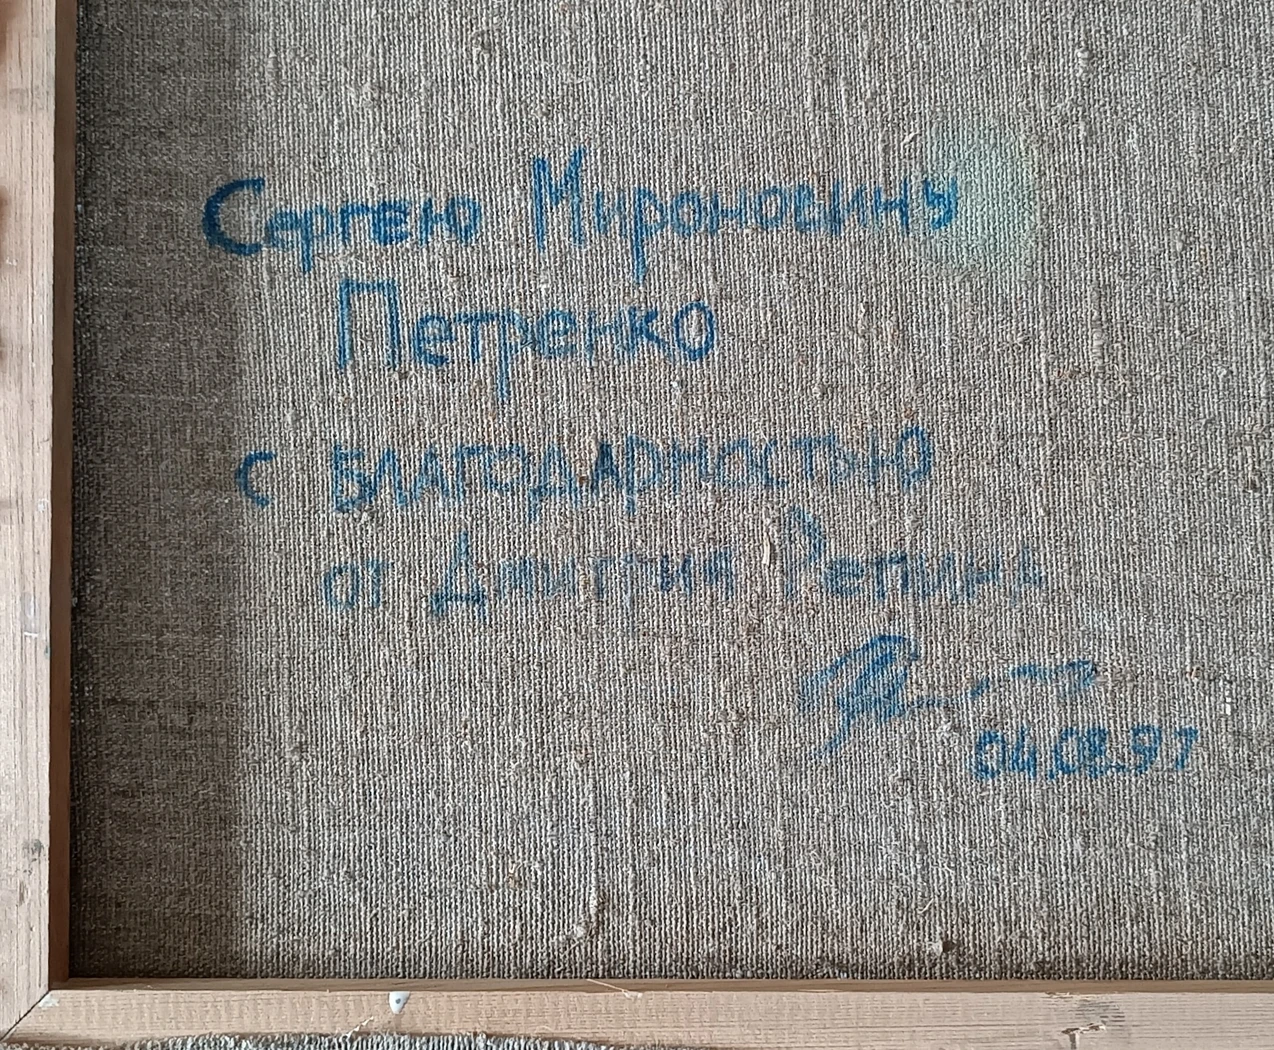 Сергею Мироновичу
Петренко
с БЛАГОДАРНОСТЬЮ
от Дмитрия Репина
04.08.97